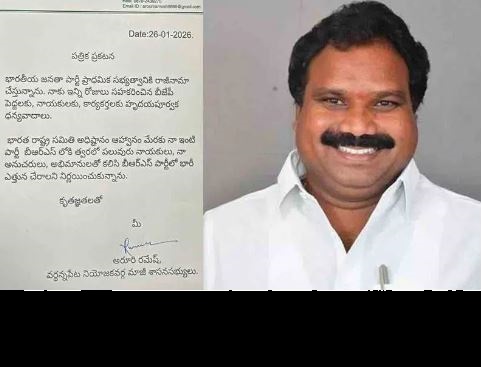 Email ID :
Date:26-01-2026.
పత్రిక ప్రకటన
భారతీయ జనతా పార్టీ ప్రాథమిక సభ్యత్వానికి రాజీనామా
చేస్తున్నాను. నాకు ఇన్ని రోజులు సహకరించిన బీజేపీ
పెద్దలకు, నాయకులకు, కార్యకర్తలకు హృదయపూర్వక
ధన్యవాదాలు.
భారత రాష్ట్ర సమితి అధిష్ఠానం ఆహ్వానం మేరకు నా ఇంటి
పార్టీ బీఆర్ఎస్ లోకి త్వరలో పలువురు నాయకులు, నా
అనుచరులు, అభిమానులతో కలిసి బీఆర్ఎస్ పార్టీలో భారీ
ఎత్తున చేరాలని నిర్ణయించుకున్నాను.
కృతజ్ఞతలతో
మీ
అరూరి రమేష్,
వర్ధన్నపేట నియోజకవర్గ మాజీ శాసనసభ్యులు.